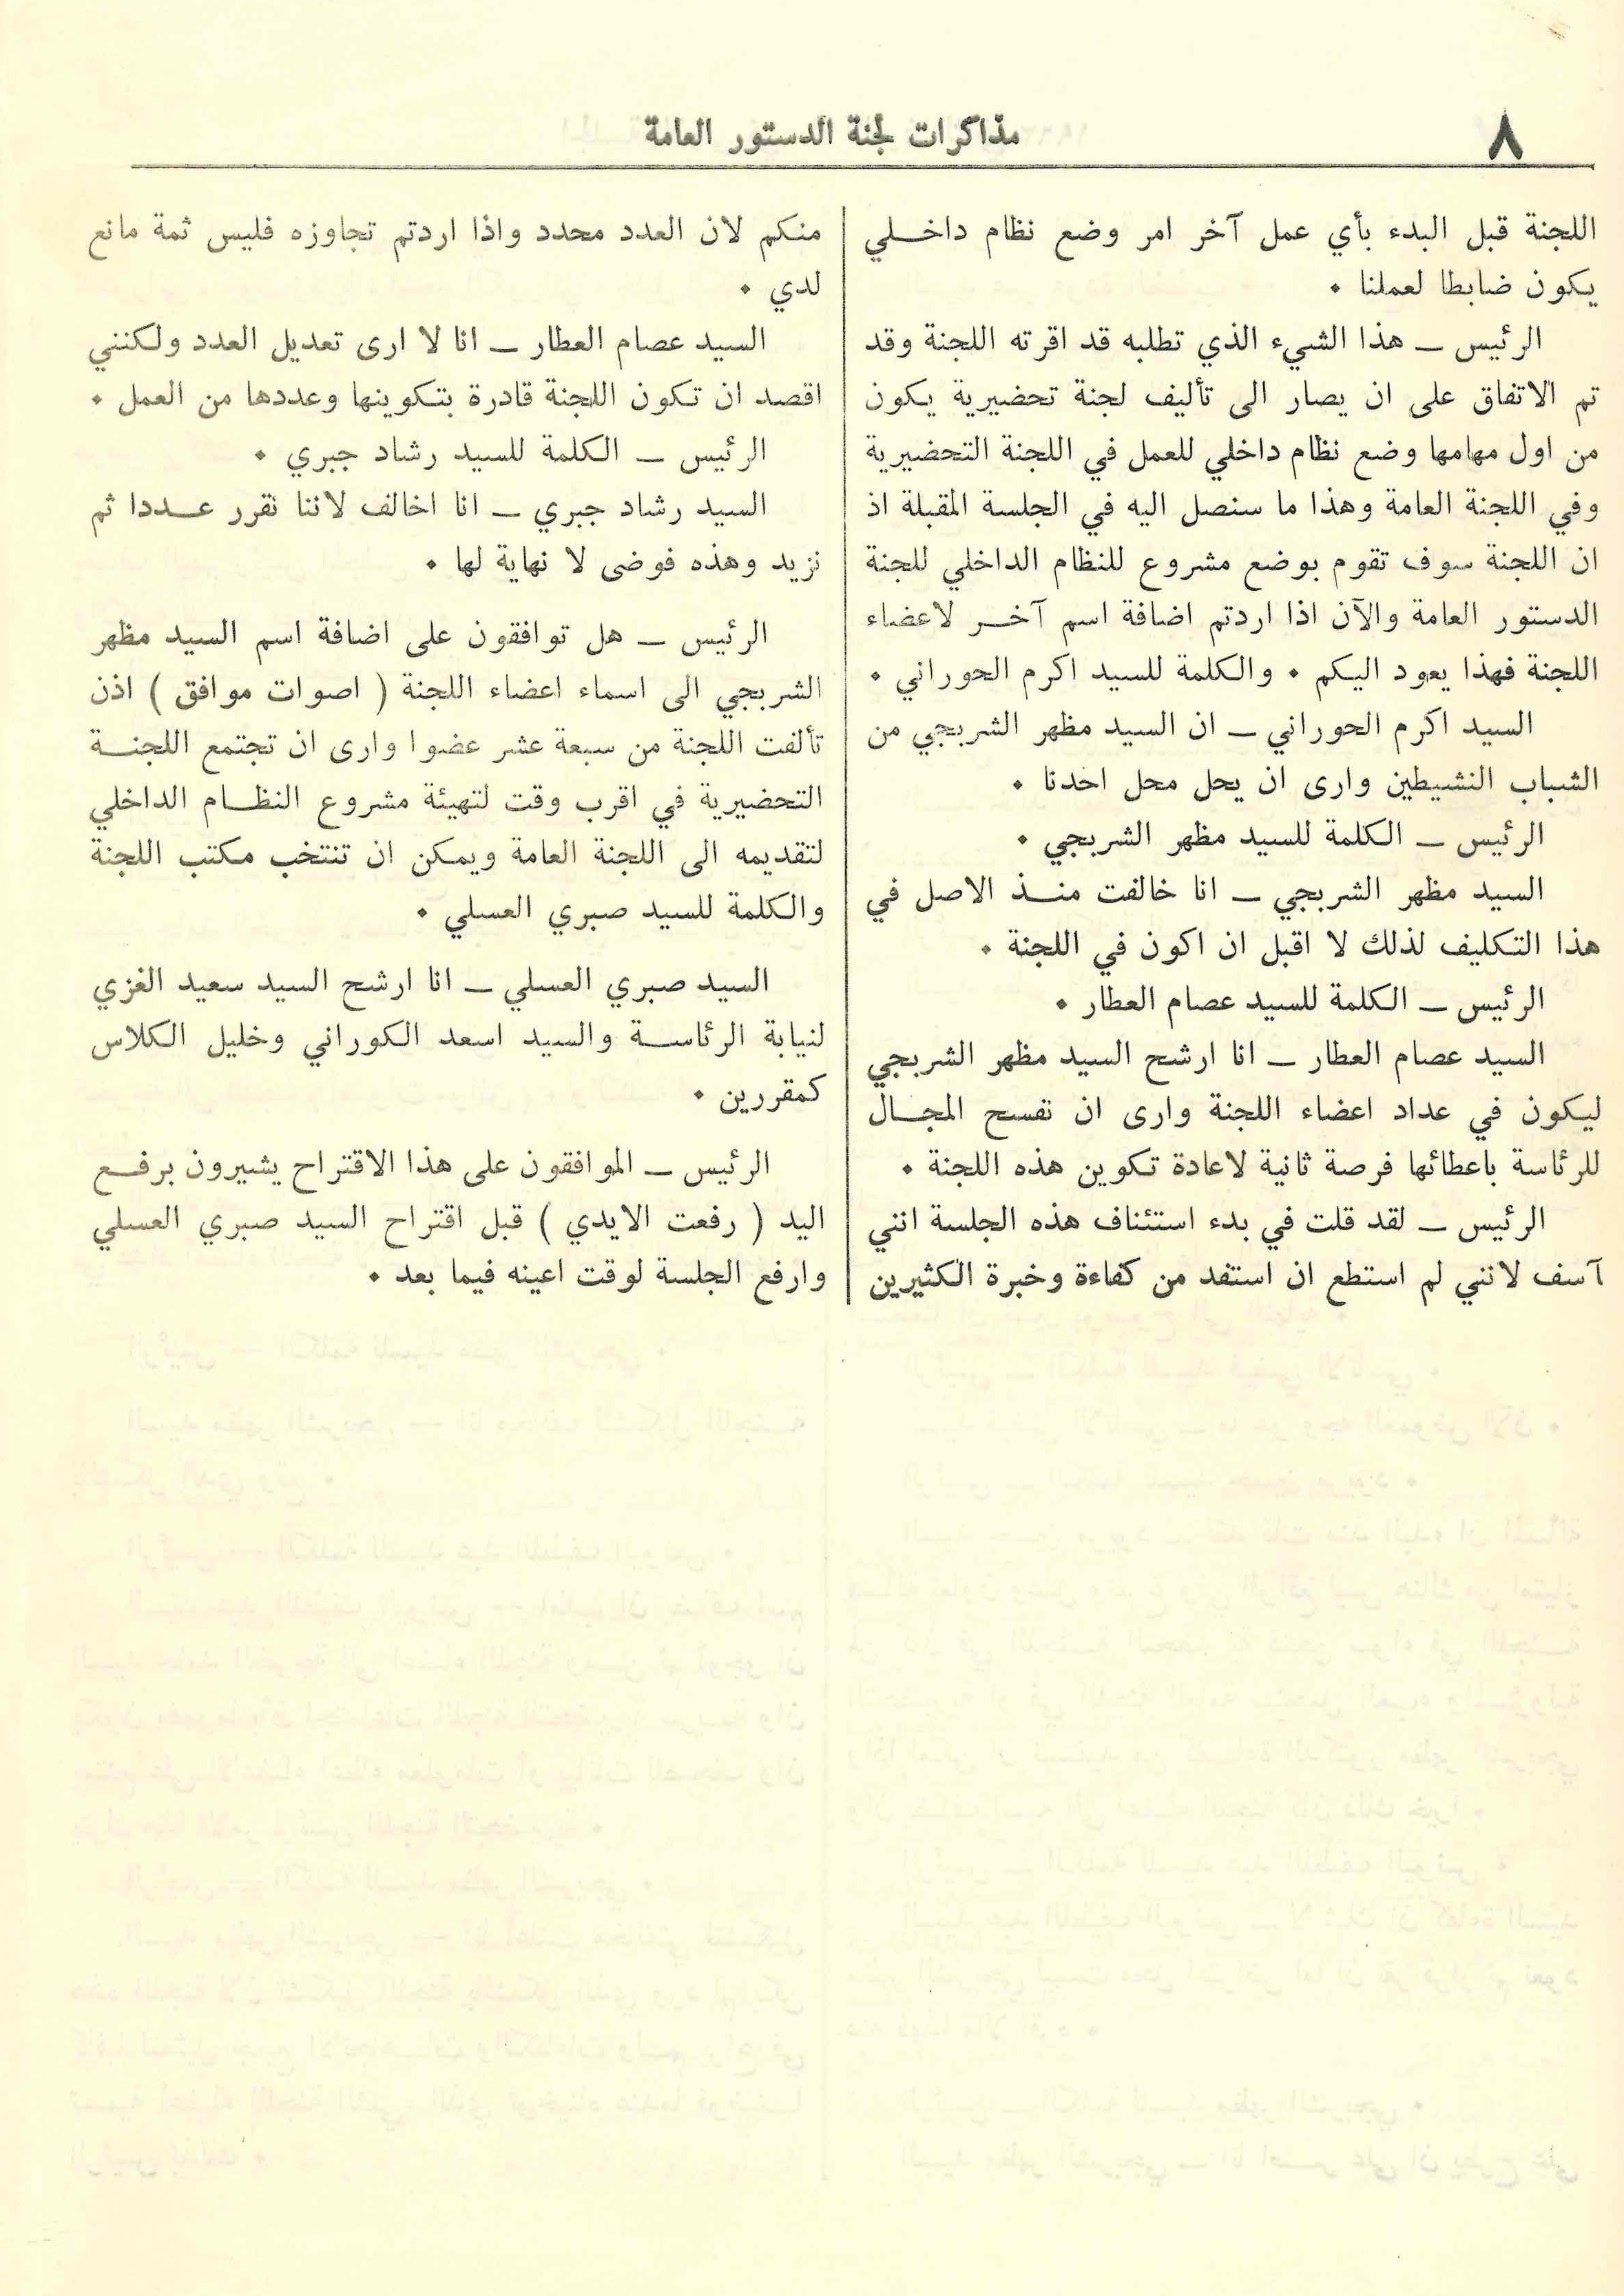 ٨
مذاكرات لجنة الدستور العامة
اللجنة قبل البدء بأي عمل آخر امر وضع نظام داخلي
يكون ضابطا لعملنا ٠
الرئيس ــ هذا الشيء الذي تطلبه قد اقرته اللجنة وقد
تم الاتفاق على ان يصار الى تأليف لجنة تحضيرية يكون
من اول مهامها وضع نظام داخلي للعمل في اللجنة التحضيرية
وفي اللجنة العامة وهذا ما سنصل اليه في الجلسة المقبلة اذ
ان اللجنة سوف تقوم بوضع مشروع للنظام الداخلي للجنة
الدستور العامة والآن اذا اردتم اضافة اسم آخر لاعضاء
اللجنة فهذا يعود اليكم ٠ والكلمة للسيد اكرم الحوراني ٠
السيد اكرم الحوراني ــ ان السيد مظهر الشربجي من
الشباب النشيطين وارى ان يحل محل احدنا ٠
الرئيس ــ الكلمة للسيد مظهر الشربجي ٠
السيد مظهر الشربجي ــ انا خالفت منذ الاصل في
هذا التكليف لذلك لا اقبل ان اكون في اللجنة ٠
الرئيس ــ الكلمة للسيد عصام العطار ٠
السيد عصام العطار ــ انا ارشح السيد مظهر الشربجي
ليكون في عداد اعضاء اللجنة وارى ان تفسح المجال
للرئاسة باعطائها فرصة ثانية لاعادة تكوين هذه اللجنة ٠
الرئيس ــ لقد قلت في بدء استئناف هذه الجلسة انني
آسف لانني لم استطع ان استفد من كفاءة وخبرة الكثيرين
منكم لان العدد محدد واذا اردتم تجاوزه فليس ثمة مانع
لدي ٠
السيد عصام العطار ــ انا لا ارى تعديل العدد ولكنني
اقصد ان تكون اللجنة قادرة بتكوينها وعددها من العمل ٠
الرئيس ــ الكلمة للسيد رشاد جبري ٠
السيد رشاد جبري ــ انا اخالف لاننا نقرر عددا ثم
نزيد وهذه فوضى لا نهاية لها ٠
الرئيس ــ هل توافقون على اضافة اسم السيد مظهر
الشربجي الى اسماء اعضاء اللجنة ( اصوات موافق ) اذن
تألفت اللجنة من سبعة عشر عضوا وارى ان تجتمع اللجنة
التحضيرية في اقرب وقت لتهيئة مشروع النظام الداخلي
لتقديمه الى اللجنة العامة ويمكن ان تنتخب مكتب اللجنة
والكلمة للسيد صبري العسلي ٠
السيد صبري العسلي ــ انا ارشح السيد سعيد الغزي
لنيابة الرئاسة والسيد اسعد الكوراني وخليل الكلاس
كمقررين ٠
الرئيس ــ الموافقون على هذا الاقتراح يشيرون برفع
اليد ( رفعت الايدي ) قبل اقتراح السيد صبري العسلي
وارفع الجلسة لوقت اعينه فيما بعد ٠